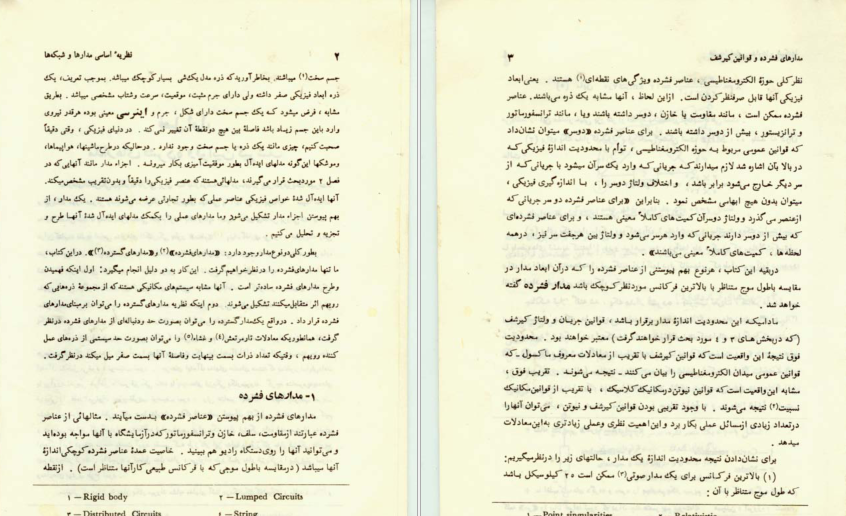 ۲ نظریهٔ اساسی مدارها و شبکه‌ها
جسم سخت(۱) میباشند. بخاطر آورید که ذره مدل یک شی بسیار کوچک میباشد. بموجب تعریف، یک
ذره ابعاد فیزیکی صفر داشته ولی دارای جرم مثبت، موقعیت، سرعت وشتاب مشخصی میباشد. بطریق
مشابه، فرض میشود که یک جسم سخت دارای شکل، جرم و اینرسی معینی بوده هرقدر نیروی
وارد باین جسم زیاد باشد فاصلهٔ بین هیچ دونقطهٔ آن تغییر نمی کند. در دنیای فیزیکی، وقتی دقیقاً
صحبت کنیم، چیزی مانند یک ذره یا جسم سخت وجود ندارد. درحالیکه درطرح ماشینها، هواپیماها،
وموشکها این گونه مدلهای ایده‌آل بطور موفقیت آمیزی بکار میروند. اجزاء مدار مانند آنهایی که در
فصل ۲ موردبحث قرار می گیرند، مدلهائی هستند که عنصر فیزیکی را دقیقاً وبدون تقریب مشخص میکند.
آنها ایده‌آل شدهٔ خواص فیزیکی عناصر عملی که بطور تجارتی عرضه می شوند هستند. یک مدار، از
بهم پیوستن اجزاء مدار تشکیل می شود وما مدارهای عملی را بکمک مدلهای ایده‌آل شدهٔ آنها طرح و
تجزیه و تحلیل می کنیم.
بطور کلی دونوع مدار وجود دارد: «مدارهای فشرده»(۲) و «مدارهای گسترده(۳)». دراین کتاب،
ما تنها مدارهای فشرده را درنظر خواهیم گرفت. این کار به دو دلیل انجام میگیرد: اول اینکه فهمیدن
وطرح مدارهای فشرده ساده‌تر است. آنها مشابه سیستم‌های مکانیکی هستند که از مجموعهٔ ذره‌هایی که
رویهم اثر متقابل میکنند تشکیل می شوند. دوم اینکه نظریه مدارهای گسترده را می توان برمبنای مدارهای
فشرده قرار داد. درواقع یک مدار گسترده را می توان بصورت حد ودنباله‌ای از مدارهای فشرده درنظر
گرفت، همانطوریکه معادلات تاومرتعش(۴) و غشاء(۵) را می توان بصورت حد سیستمی از ذره‌های عمل
کننده رویهم، وقتیکه تعداد ذرات بسمت بینهایت وفاصلهٔ آنها بسمت صفر میل میکند درنظر گرفت.
۱- مدارهای فشرده
مدارهای فشرده از بهم پیوستن «عناصر فشرده» بدست میآیند. مثالهائی از عناصر
فشرده عبارتند ازمقاومت، سلف، خازن وترانسفورماتور که درآزمایشگاه با آنها مواجه بوده‌اید
و می توانید آنها را روی دستگاه رادیو هم ببینید. خاصیت عمدهٔ عناصر فشرده کوچکی اندازهٔ
آنها میباشد (درمقایسه باطول موجی که با فرکانس طبیعی کارآنها متناظر است). ازنقطه
۱ — Rigid body ۲ — Lumped Circuits
۳ — Distributed Circuits ۴ — String
مدارهای فشرده و قوانین کیرشف ۳
نظر کلی حوزهٔ الکترومغناطیسی، عناصر فشرده ویژگی های نقطه‌ای(۱) هستند. یعنی ابعاد
فیزیکی آنها قابل صرفنظر کردن است. ازاین لحاظ، آنها مشابه یک ذره می باشند. عناصر
فشرده ممکن است، مانند مقاومت یا خازن، دوسر داشته باشند ویا، مانند ترانسفورماتور
و ترانزیستور، بیش از دوسر داشته باشند. برای عناصر فشرده «دوسر» میتوان نشان داد
که قوانین عمومی مربوط به حوزه الکترومغناطیسی، توأم با محدودیت اندازهٔ فیزیکی که
در بالا بآن اشاره شد لازم میدارند که جریانی که وارد یک سرآن میشود با جریانی که از
سر دیگر خارج می شود برابر باشد، و اختلاف ولتاژ دوسر را، با اندازه گیری فیزیکی،
میتوان بدون هیچ ابهامی مشخص نمود. بنابراین «برای عناصر فشرده دو سر جریانی که
ازعنصر می گذرد و ولتاژ دوسرآن کمیت های کاملاً معینی هستند، و برای عناصر فشرده‌ای
که بیش از دوسر دارند جریانی که وارد هرسر می شود و ولتاژ بین هرجفت سر نیز، درهمه
لحظه ها، کمیت های کاملاً معینی می باشند».
دربقیه این کتاب، هرنوع بهم پیوستنی ازعناصر فشرده را که درآن ابعاد مدار در
مقایسه باطول موج متناظر با بالاترین فرکانس موردنظر کوچک باشد مدار فشرده گفته
خواهد شد.
مادامیکه این محدودیت اندازهٔ مدار برقرار باشد، قوانین جریان و ولتاژ کیرشف
(که دربخش های ۳ و ۴ مورد بحث قرار خواهند گرفت) معتبر خواهند بود. محدودیت
فوق نتیجهٔ این واقعیت است که قوانین کیرشف با تقریب از معادلات معروف ماکسول - که
قوانین عمومی میدان الکترومغناطیسی را بیان می کنند - نتیجه می شوند. تقریب فوق،
مشابه این واقعیت است که قوانین نیوتن درمکانیک کلاسیک، با تقریب از قوانین مکانیک
نسبیت(۲) نتیجه می شوند. با وجود تقریبی بودن قوانین کیرشف و نیوتن، می توان آنها را
درتعداد زیادی ازمسائل عملی بکار برد و این اهمیت نظری وعملی زیادتری به این معادلات
میدهد.
برای نشان دادن نتیجه محدودیت اندازهٔ یک مدار، حالتهای زیر را درنظر میگیریم:
(۱) بالاترین فرکانس برای یک مدار صوتی(۳) ممکن است ۲۵ کیلوسیکل باشد
که طول موج متناظر با آن:
۱ — Point singularities ۲ — Relativistic